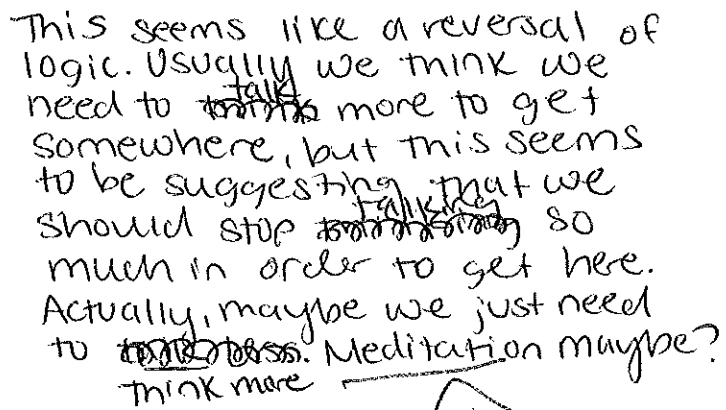 This seems like a reversal of
logic. Usually we think we
need to talk more to get
somewhere, but this seems
to be suggesting that we
should stop talking so
much in order to get here.
Actually, maybe we just need
to think more. Meditation maybe?